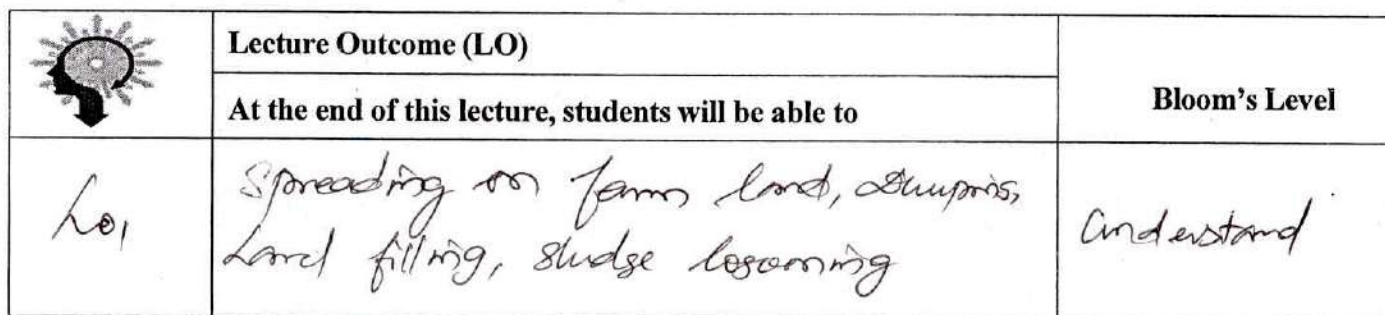 Lecture Outcome (LO)
At the end of this lecture, students will be able to
Bloom's Level
LO1
Spreading on farm land, Dumping,
Land filling, sludge lagooning
Understand